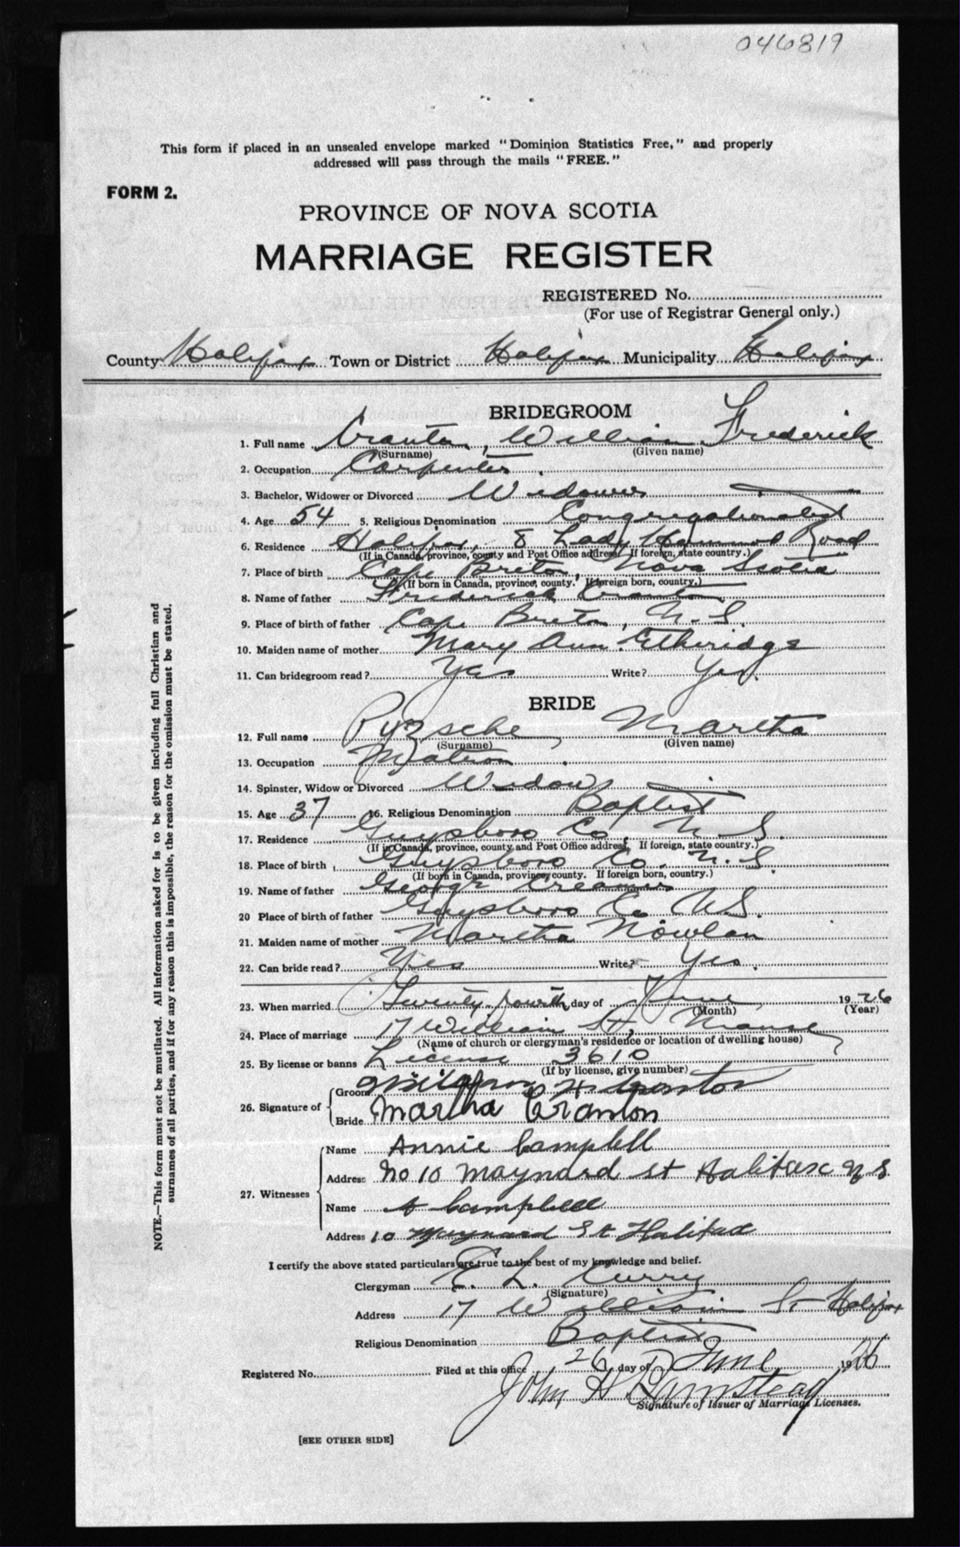 046819
This form if placed in an unsealed envelope marked "Dominion Statistics Free," and properly
addressed will pass through the mails "FREE."
FORM 2.
PROVINCE OF NOVA SCOTIA
MARRIAGE REGISTER
REGISTERED No.
(For use of Registrar General only.)
County Halifax Town or District Halifax Municipality Halifax
BRIDEGROOM
1. Full name Cranton, William Frederick
(Surname) (Given name)
2. Occupation Carpenter.
3. Bachelor, Widower or Divorced Widower
4. Age 54 5. Religious Denomination Congregationalist
6. Residence Halifax, 8 Lady Hammond Road
(If in Canada, province, county and Post Office address. If foreign, state country.)
7. Place of birth Cape Breton, Nova Scotia
(If born in Canada, province, county. If foreign born, country.)
8. Name of father Frederick Cranton
9. Place of birth of father Cape Breton, N.S.
10. Maiden name of mother Mary Ann Etheridge
11. Can bridegroom read? Yes Write? Yes.
BRIDE
12. Full name Pyzsche, Martha
(Surname) (Given name)
13. Occupation Matron.
14. Spinster, Widow or Divorced Widow
15. Age 37 16. Religious Denomination Baptist
17. Residence Guysboro Co, N.S.
(If in Canada, province, county and Post Office address. If foreign, state country.)
18. Place of birth Guysboro Co. N.S.
(If born in Canada, province county. If foreign born, country.)
19. Name of father George Creamer
20 Place of birth of father Guysboro Co NS.
21. Maiden name of mother Martha Nowlan
22. Can bride read? Yes Write? Yes.
23. When married Twenty-fourth day of June 1926
(Month) (Year)
24. Place of marriage 17 William St, Manse
(Name of church or clergyman's residence or location of dwelling house)
25. By license or banns License 3610
(If by license, give number)
26. Signature of Groom Cranton
Bride Martha Cranton
27. Witnesses Name Annie Campbell
Address No 10 Maynard St Halifax N S
Name A Campbell
Address 10 Maynard St Halifax
I certify the above stated particulars are true to the best of my knowledge and belief.
Clergyman E. L. Curry
(Signature)
Address 17 William St Halifax
Religious Denomination Baptist
Registered No. Filed at this office 26 day of June 1926
John H Barnstead
Signature of Issuer of Marriage Licenses.
[SEE OTHER SIDE]
NOTE.—This form must not be mutilated. All information asked for is to be given including full Christian and
surnames of all parties, and if for any reason this is impossible, the reason for the omission must be stated.